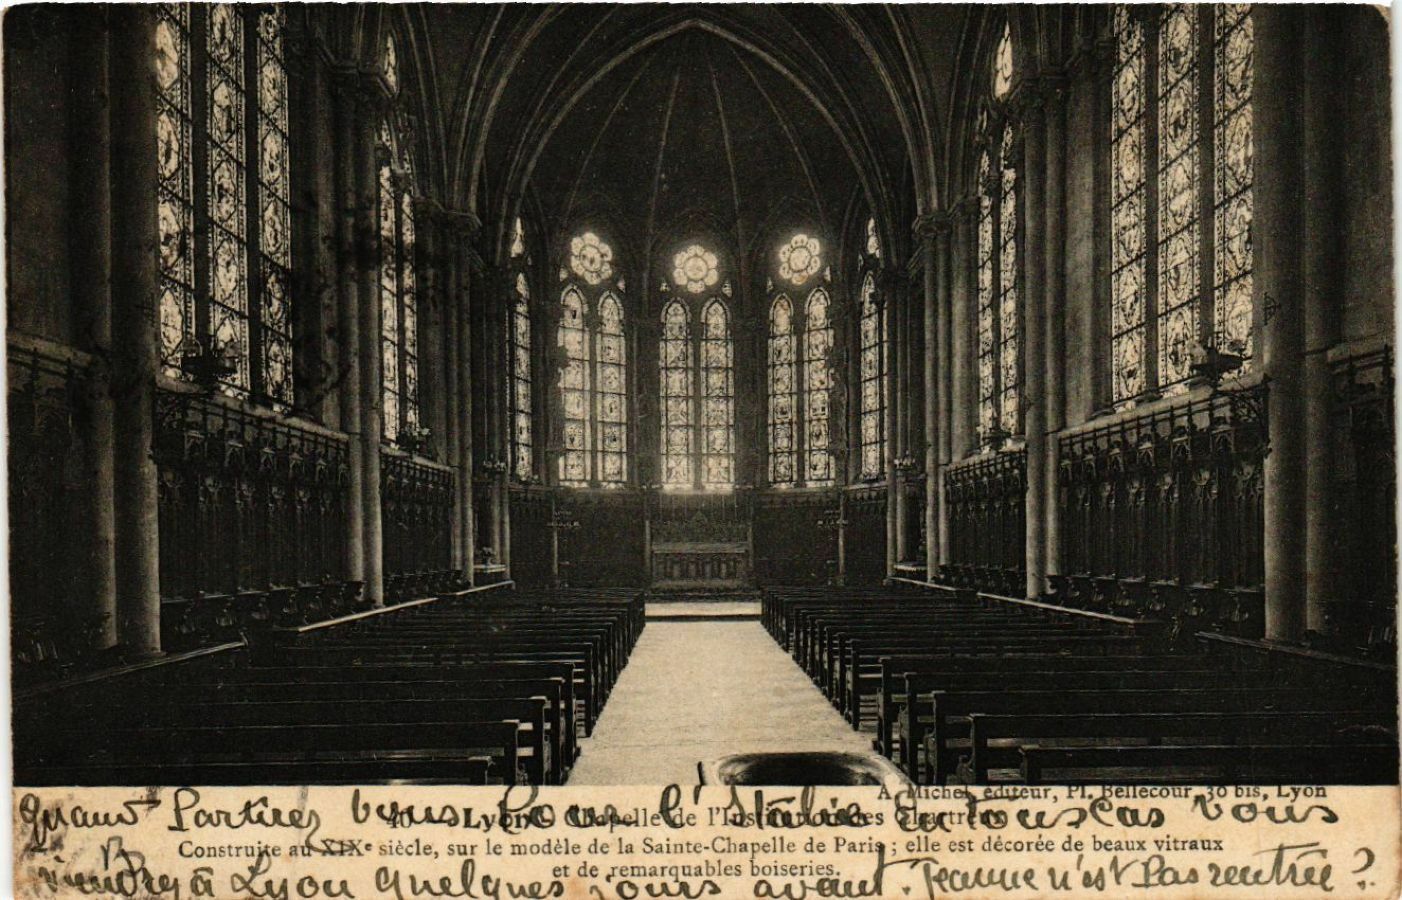 A. Michel, éditeur, Pl. Bellecour, 30 bis, Lyon
40 - Lyon - Chapelle de l'Institution des Chartreux
Quand Partirez vous Pour l'Italie En tous cas vous
Construite au XIXe siècle, sur le modèle de la Sainte-Chapelle de Paris ; elle est décorée de beaux vitraux
et de remarquables boiseries.
viendrez à Lyon quelques jours avant. Jeanne n'est Pas rentrée ?